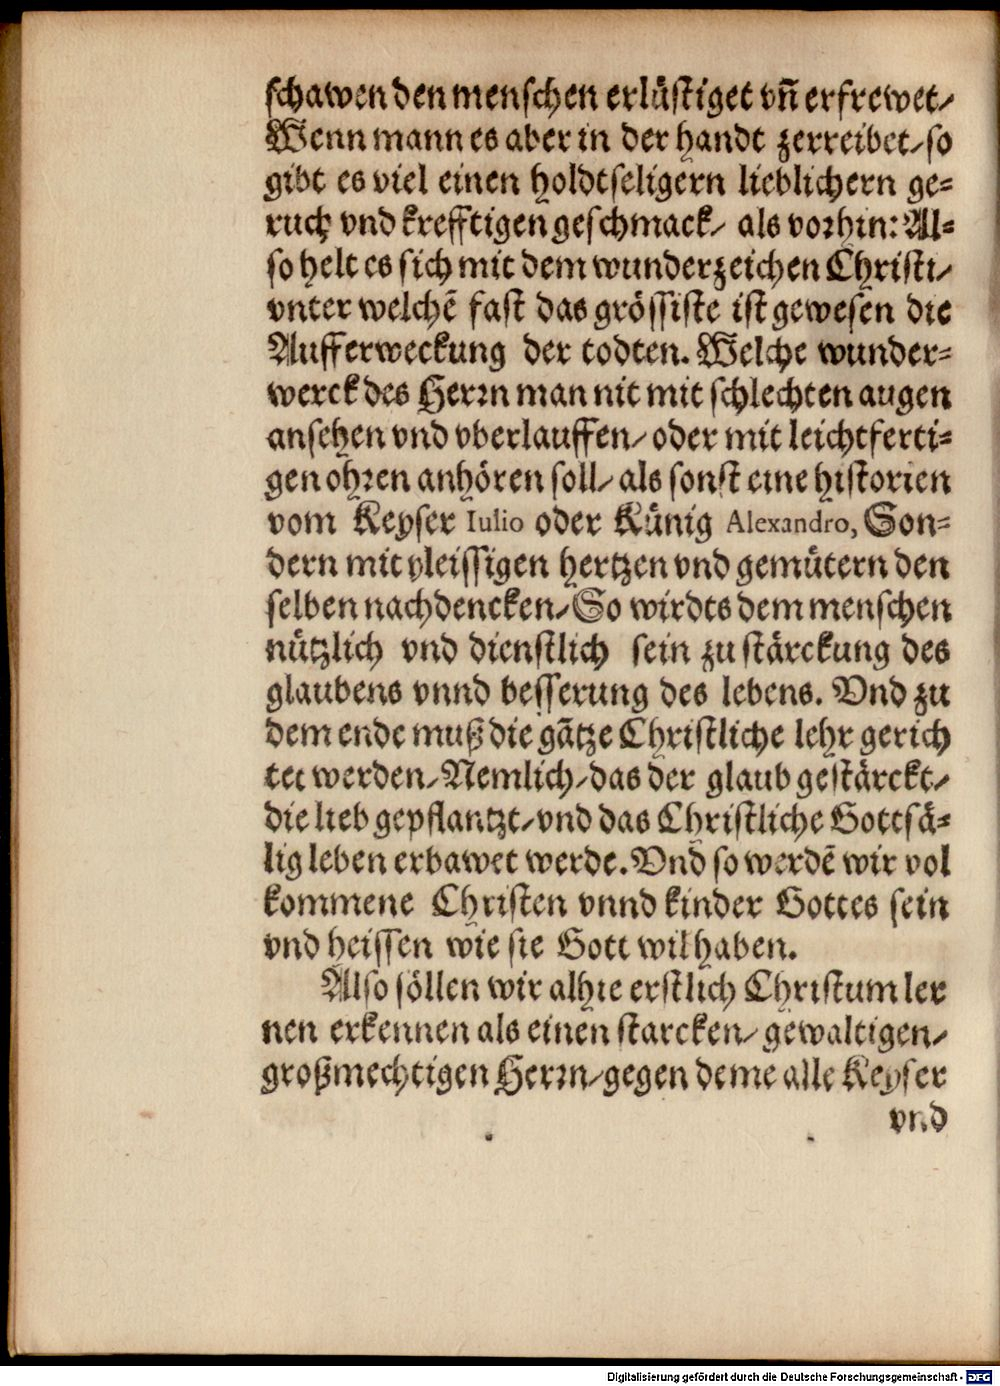 schawen den menschen erlüstiget vñ erfrewet/
Wenn mann es aber in der handt zerreibet/ so
gibt es viel einen holdtseligern lieblichern ge=
ruch vnd krefftigen geschmack/ als vorhin: Al=
so helt es sich mit dem wunderzeichen Christi/
vnter welchē fast das grössiste ist gewesen die
Aufferweckung der todten. Welche wunder=
werck des Herrn man nit mit schlechten augen
ansehen vnd vberlauffen/ oder mit leichtferti=
gen ohren anhören soll/ als sonst eine historien
vom Keyser Iulio oder Künig Alexandro, Son=
dern mit vleissigen hertzen vnd gemütern den
selben nachdencken/ So wirdts dem menschen
nützlich vnd dienstlich sein zu stärckung des
glaubens vnnd besserung des lebens. Vnd zu
dem ende muß die gātze Christliche lehr gerich
tet werden/ Nemlich/ das der glaub gestärckt/
die lieb gepflantzt/ vnd das Christliche Gottsä=
lig leben erbawet werde. Vnd so werdē wir vol
kommene Christen vnnd kinder Gottes sein
vnd heissen wie sie Gott wil haben.
Also söllen wir alhie erstlich Christum ler
nen erkennen als einen starcken/ gewaltigen/
großmechtigen Herrn/ gegen deme alle Keyser
vnd
Digitalisierung gefördert durch die Deutsche Forschungsgemeinschaft - DFG